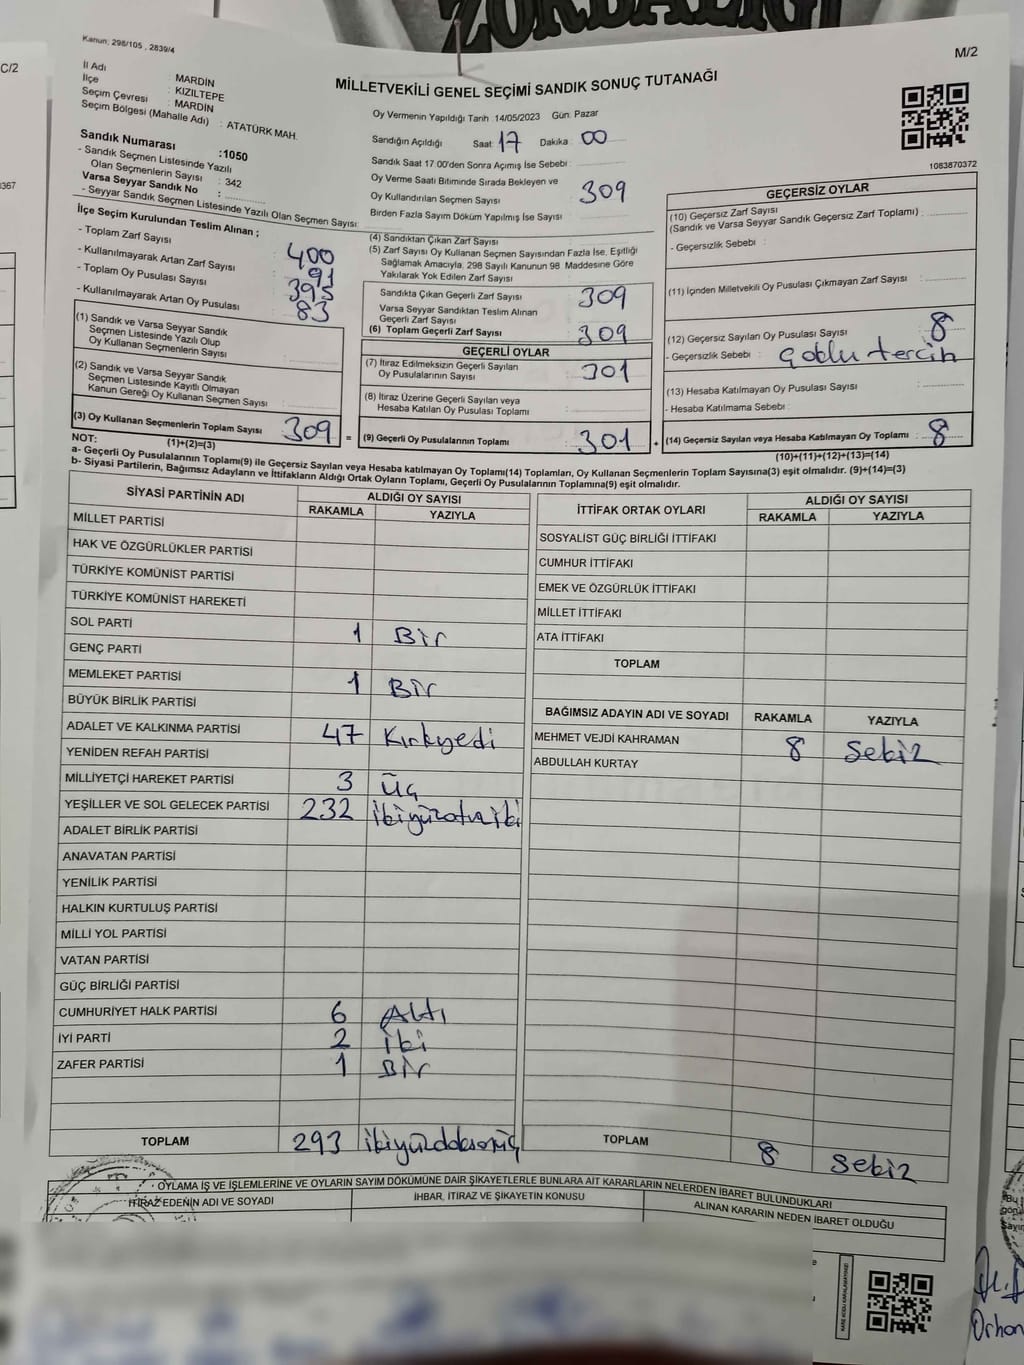 ZORBALIĞI
Kanun: 298/105 , 2839/4
M/2
C/2
İl Adı : MARDİN
İlçe : KIZILTEPE
Seçim Çevresi : MARDİN
Seçim Bölgesi (Mahalle Adı) : ATATÜRK MAH.
MİLLETVEKİLİ GENEL SEÇİMİ SANDIK SONUÇ TUTANAĞI
Oy Vermenin Yapıldığı Tarih :14/05/2023 Gün: Pazar
Sandığın Açıldığı Saat: 17 Dakika: 00
Sandık Saat 17.00'den Sonra Açımış İse Sebebi :
Oy Verme Saati Bitiminde Sırada Bekleyen ve
Oy Kullandırılan Seçmen Sayısı : 309
Birden Fazla Sayım Döküm Yapılmış İse Sayısı :
1083870372
367
Sandık Numarası :1050
- Sandık Seçmen Listesinde Yazılı
Olan Seçmenlerin Sayısı : 342
Varsa Seyyar Sandık No :
- Seyyar Sandık Seçmen Listesinde Yazılı Olan Seçmen Sayısı:
İlçe Seçim Kurulundan Teslim Alınan ;
- Toplam Zarf Sayısı : 400
- Kullanılmayarak Artan Zarf Sayısı : 91
- Toplam Oy Pusulası Sayısı : 395
- Kullanılmayarak Artan Oy Pusulası : 83
(1) Sandık ve Varsa Seyyar Sandık
Seçmen Listesinde Yazılı Olup
Oy Kullanan Seçmenlerin Sayısı :
(2) Sandık ve Varsa Seyyar Sandık
Seçmen Listesinde Kayıtlı Olmayan
Kanun Gereği Oy Kullanan Seçmen Sayısı :
(3) Oy Kullanan Seçmenlerin Toplam Sayısı : 309 =
(1)+(2)=(3)
(4) Sandıktan Çıkan Zarf Sayısı :
(5) Zarf Sayısı Oy Kullanan Seçmen Sayısından Fazla İse, Eşitliği
Sağlamak Amacıyla, 298 Sayılı Kanunun 98 Maddesine Göre
Yakılarak Yok Edilen Zarf Sayısı :
Sandıkta Çıkan Geçerli Zarf Sayısı : 309
Varsa Seyyar Sandıktan Teslim Alınan
Geçerli Zarf Sayısı :
(6) Toplam Geçerli Zarf Sayısı : 309
GEÇERLİ OYLAR
(7) İtiraz Edilmeksizin Geçerli Sayılan
Oy Pusulalarının Sayısı : 301
(8) İtiraz Üzerine Geçerli Sayılan veya
Hesaba Katılan Oy Pusulası Toplamı :
(9) Geçerli Oy Pusulalarının Toplamı : 301 +
GEÇERSİZ OYLAR
(10) Geçersiz Zarf Sayısı
(Sandık ve Varsa Seyyar Sandık Geçersiz Zarf Toplamı) :
- Geçersizlik Sebebi :
(11) İçinden Milletvekili Oy Pusulası Çıkmayan Zarf Sayısı :
(12) Geçersiz Sayılan Oy Pusulası Sayısı : 8
- Geçersizlik Sebebi : çoklu tercih
(13) Hesaba Katılmayan Oy Pusulası Sayısı :
- Hesaba Katılmama Sebebi :
(14) Geçersiz Sayılan veya Hesaba Katılmayan Oy Toplamı : 8
(10)+(11)+(12)+(13)=(14)
NOT:
a- Geçerli Oy Pusulaları Toplamı(9) ile Geçersiz Sayılan veya Hesaba katılmayan Oy Toplamı(14) Toplamları, Oy Kullanan Seçmenlerin Toplam Sayısına(3) eşit olmalıdır. (9)+(14)=(3)
b- Siyasi Partilerin, Bağımsız Adayların ve İttifakların Aldığı Ortak Oyların Toplamı, Geçerli Oy Pusulalarının Toplamına(9) eşit olmalıdır.
SİYASİ PARTİNİN ADI ALDIĞI OY SAYISI
RAKAMLA YAZIYLA
MİLLET PARTİSİ
HAK VE ÖZGÜRLÜKLER PARTİSİ
TÜRKİYE KOMÜNİST PARTİSİ
TÜRKİYE KOMÜNİST HAREKETİ
SOL PARTİ 1 Bir
GENÇ PARTİ
MEMLEKET PARTİSİ 1 Bir
BÜYÜK BİRLİK PARTİSİ
ADALET VE KALKINMA PARTİSİ 47 Kırkyedi
YENİDEN REFAH PARTİSİ
MİLLİYETÇİ HAREKET PARTİSİ 3 üç
YEŞİLLER VE SOL GELECEK PARTİSİ 232 ikiyüzotuziki
ADALET BİRLİK PARTİSİ
ANAVATAN PARTİSİ
YENİLİK PARTİSİ
HALKIN KURTULUŞ PARTİSİ
MİLLİ YOL PARTİSİ
VATAN PARTİSİ
GÜÇ BİRLİĞİ PARTİSİ
CUMHURİYET HALK PARTİSİ 6 Altı
İYİ PARTİ 2 iki
ZAFER PARTİSİ 1 Bir
TOPLAM 293 ikiyüzdoksanüç
İTTİFAK ORTAK OYLARI ALDIĞI OY SAYISI
RAKAMLA YAZIYLA
SOSYALİST GÜÇ BİRLİĞİ İTTİFAKI
CUMHUR İTTİFAKI
EMEK VE ÖZGÜRLÜK İTTİFAKI
MİLLET İTTİFAKI
ATA İTTİFAKI
TOPLAM
BAĞIMSIZ ADAYIN ADI VE SOYADI RAKAMLA YAZIYLA
MEHMET VEJDİ KAHRAMAN 8 sekiz
ABDULLAH KURTAY
TOPLAM 8 sekiz
OYLAMA İŞ VE İŞLEMLERİNE VE OYLARIN SAYIM DÖKÜMÜNE DAİR ŞİKAYETLERLE BUNLARA AİT KARARLARIN NELERDEN İBARET BULUNDUKLARI
İTİRAZ EDENİN ADI VE SOYADI İHBAR, İTİRAZ VE ŞİKAYETİN KONUSU ALINAN KARARIN NEDEN İBARET OLDUĞU
Orhan